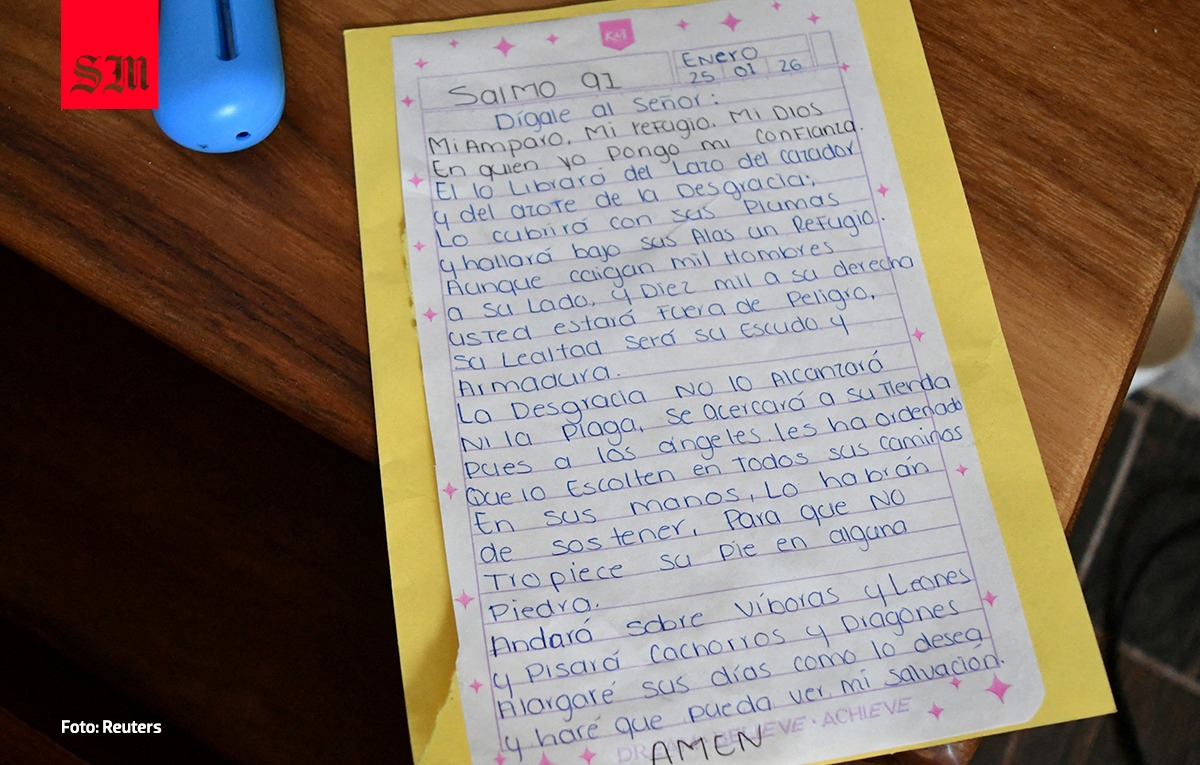 SM
K&J
Enero
25 01 26
Salmo 91
Dígale al Señor:
Mi Amparo, Mi refugio. Mi Dios
En quien yo pongo mi confianza.
El lo Librará del Lazo del cazador
y del azote de la Desgracia;
Lo cubrirá con sus Plumas
y hallará bajo sus Alas un Refugio.
Aunque caigan mil Hombres
a su Lado, y Diez mil a su derecha
usted estará Fuera de Peligro,
su Lealtad será su Escudo y
Armadura.
La Desgracia NO lo Alcanzará
Ni la Plaga, se acercará a su Tienda
pues a los ángeles les ha ordenado
Que lo Escolten en Todos sus caminos
En sus manos, Lo habrán
de sostener, Para que NO
Tropiece su pie en alguna
Piedra.
Andará sobre Víboras y Leones
y Pisará cachorros y Dragones
Alargaré sus días como lo desea
y haré que pueda ver mi salvación.
BELIEVE · ACHIEVE
AMEN
Foto: Reuters